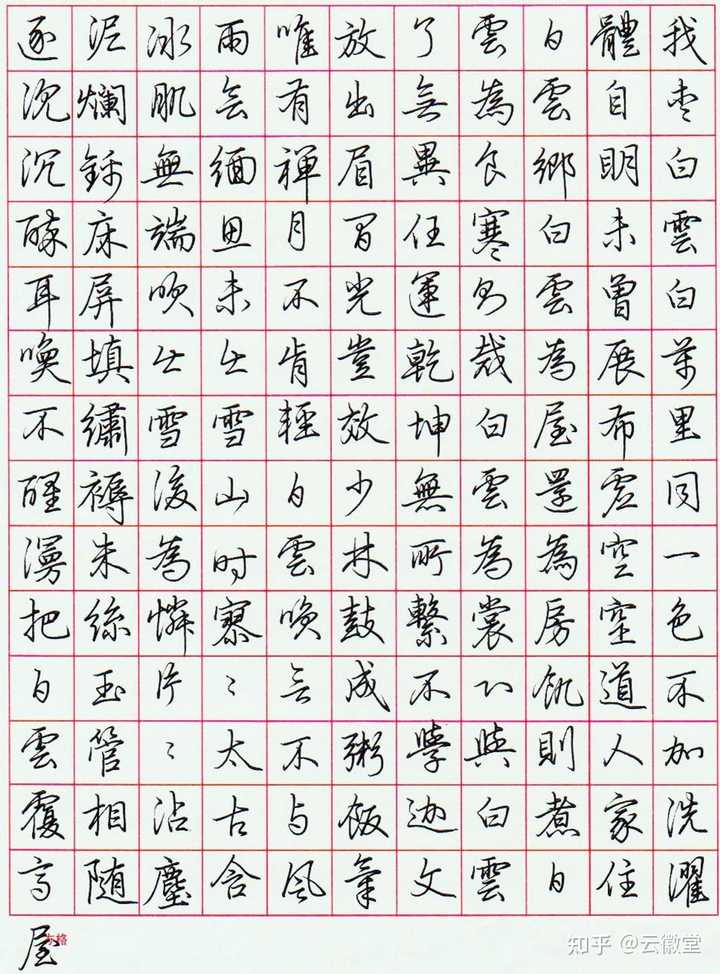 我白雲白萬里同一色不加洗濯
體自明未曾展布虛空空道人家住
白雲鄉白雲為屋還為房飢則煮白
雲為食寒裁白雲為裳與白雲
了無異任運乾坤無所繫不學迦文
放出眉間光豈效少林鼓成粥飯氣
唯有禅月不肯輕白雲唤会不与風
雨会缅思未上雪山时寥々太古含
冰肌無端吹上雪後為憐片々沾塵
泥爛鋪床屏填繡褥朱絲玉管相随
逐沉沉醉耳喚不醒漫把白雲覆高屋
知乎 @云徽堂